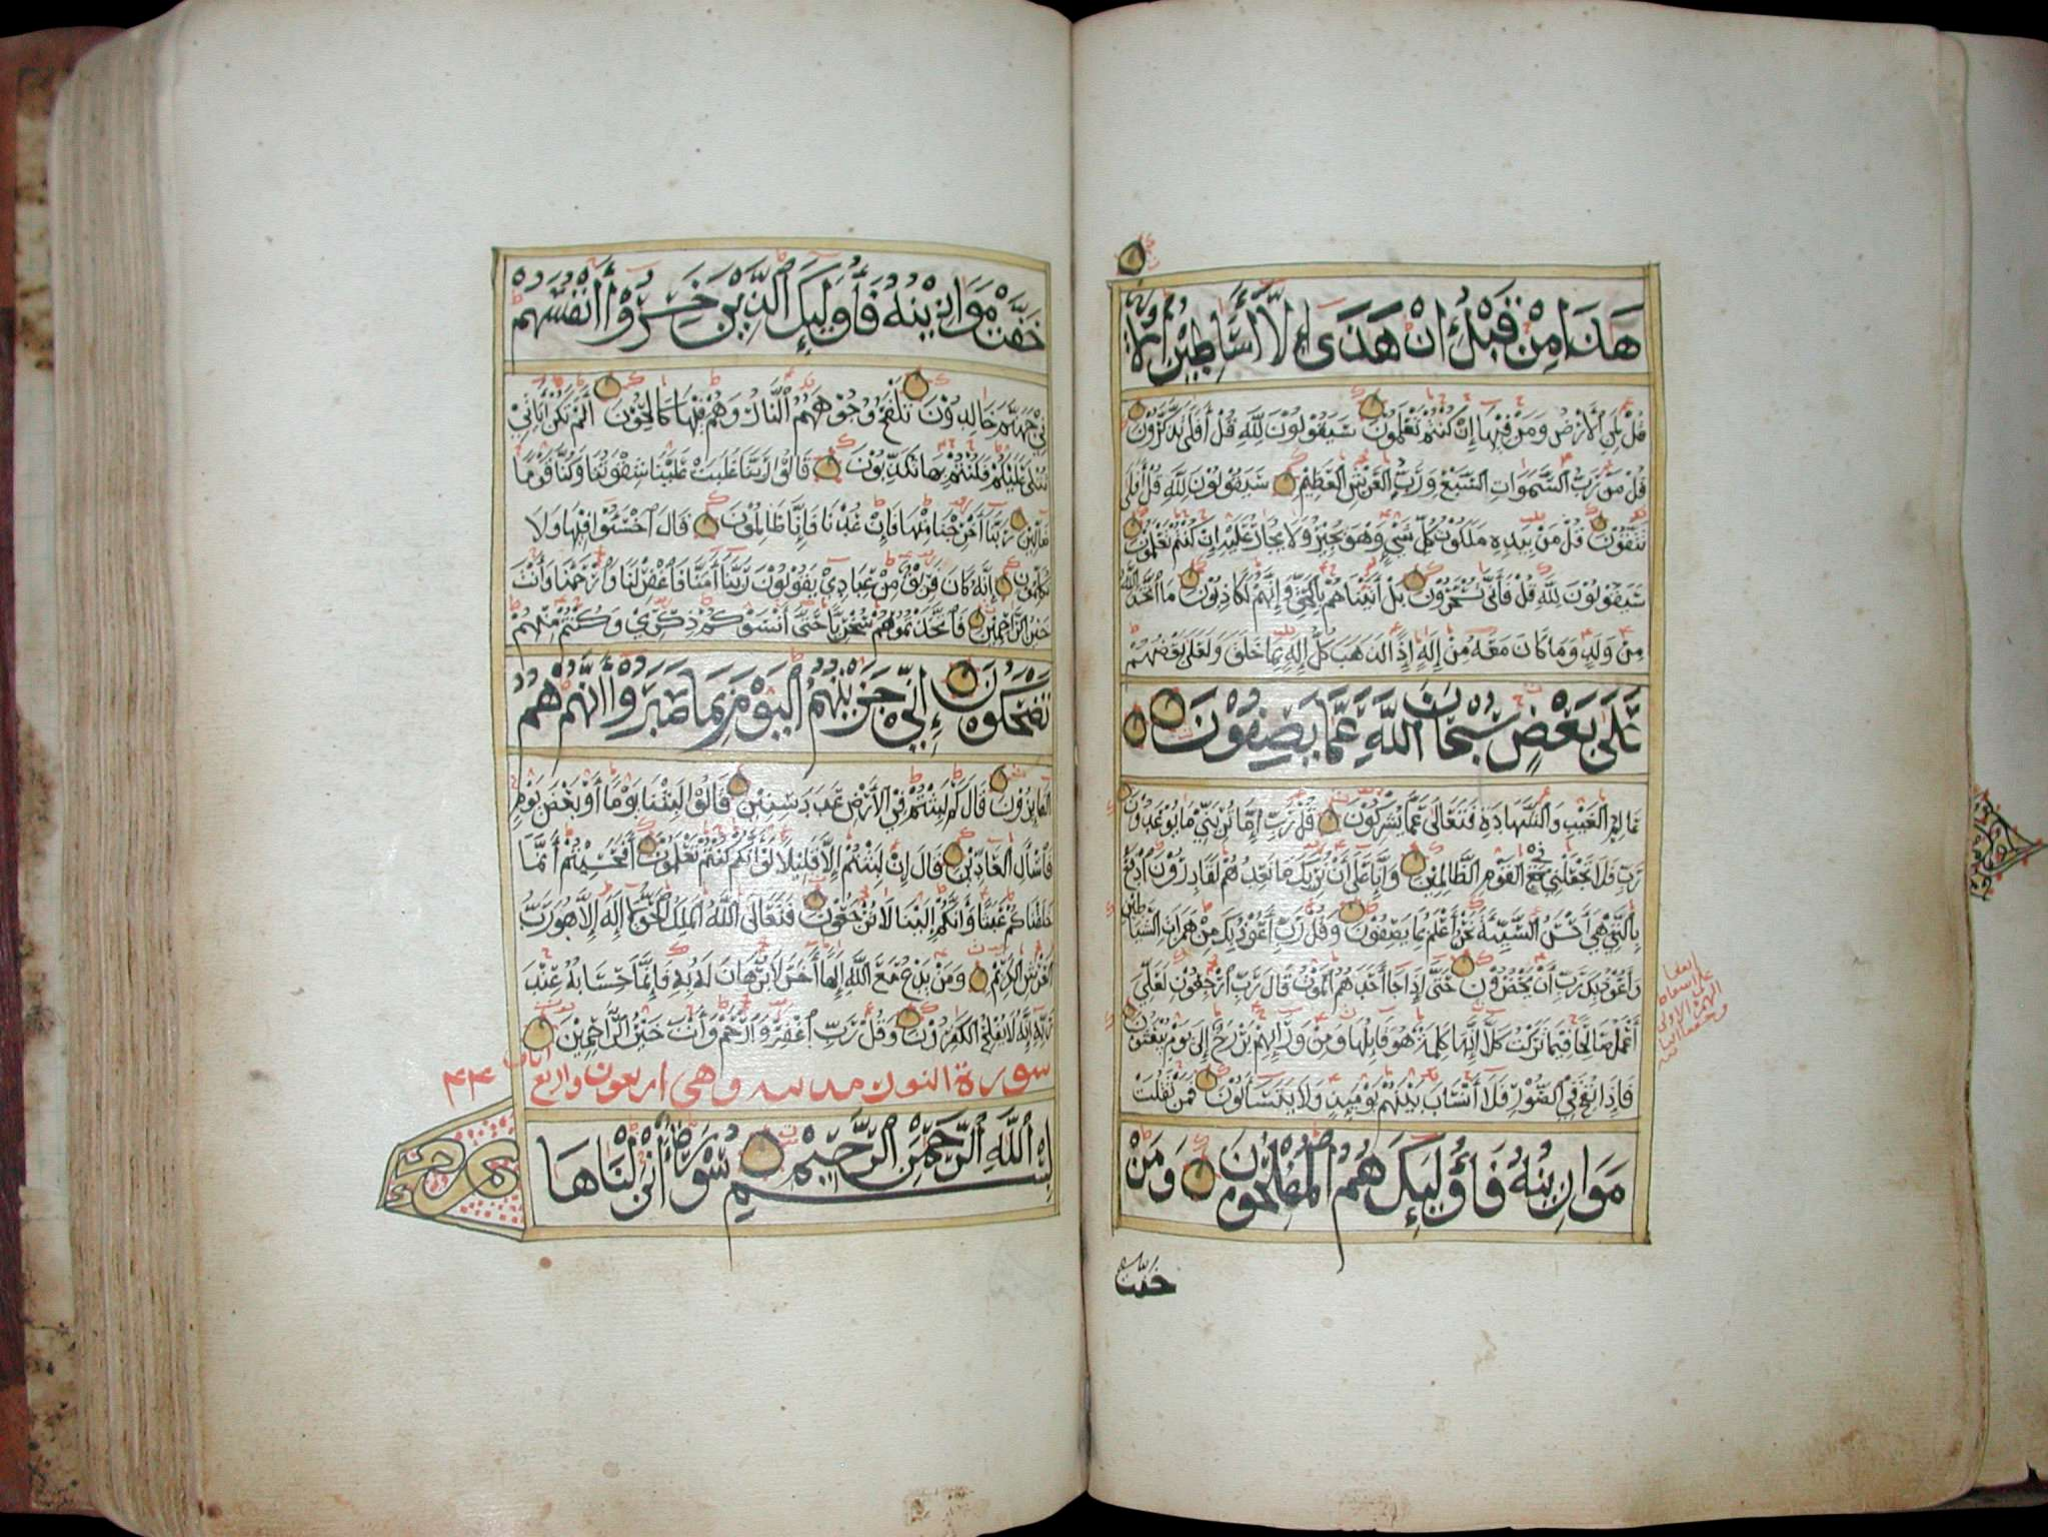 هَذَا مِنْ قَبْلُ إِنْ هَذَا إِلَّا أَسَاطِيرُ الْأَ
قُلْ لِمَنِ الْأَرْضُ وَمَنْ فِيهَا إِنْ كُنْتُمْ تَعْلَمُونَ سَيَقُولُونَ لِلَّهِ قُلْ أَفَلَا تَذَكَّرُونَ
قُلْ مَنْ رَبُّ السَّمَوَاتِ السَّبْعِ وَرَبُّ الْعَرْشِ الْعَظِيمِ سَيَقُولُونَ لِلَّهِ قُلْ أَفَلَا
تَتَّقُونَ قُلْ مَنْ بِيَدِهِ مَلَكُوتُ كُلِّ شَيْءٍ وَهُوَ يُجِيرُ وَلَا يُجَارُ عَلَيْهِ إِنْ كُنْتُمْ تَعْلَمُونَ
سَيَقُولُونَ لِلَّهِ قُلْ فَأَنَّى تُسْحَرُونَ بَلْ أَتَيْنَاهُمْ بِالْحَقِّ وَإِنَّهُمْ لَكَاذِبُونَ مَا اتَّخَذَ اللَّهُ
مِنْ وَلَدٍ وَمَا كَانَ مَعَهُ مِنْ إِلَهٍ إِذًا لَذَهَبَ كُلُّ إِلَهٍ بِمَا خَلَقَ وَلَعَلَى بَعْضُهُمْ
عَلَى بَعْضٍ سُبْحَانَ اللَّهِ عَمَّا يَصِفُونَ
عَالِمِ الْغَيْبِ وَالشَّهَادَةِ فَتَعَالَى عَمَّا يُشْرِكُونَ قُلْ رَبِّ إِمَّا تُرِيَنِّي مَا يُوعَدُونَ
رَبِّ فَلَا تَجْعَلْنِي فِي الْقَوْمِ الظَّالِمِينَ وَإِنَّا عَلَى أَنْ نُرِيَكَ مَا نَعِدُهُمْ لَقَادِرُونَ ادْفَعْ
بِالَّتِي هِيَ أَحْسَنُ السَّيِّئَةَ نَحْنُ أَعْلَمُ بِمَا يَصِفُونَ وَقُلْ رَبِّ أَعُوذُ بِكَ مِنْ هَمَزَاتِ الشَّيَاطِينِ
وَأَعُوذُ بِكَ رَبِّ أَنْ يَحْضُرُونِ حَتَّى إِذَا جَاءَ أَحَدَهُمُ الْمَوْتُ قَالَ رَبِّ ارْجِعُونِ لَعَلِّي
أَعْمَلُ صَالِحًا فِيمَا تَرَكْتُ كَلَّا إِنَّهَا كَلِمَةٌ هُوَ قَائِلُهَا وَمِنْ وَرَائِهِمْ بَرْزَخٌ إِلَى يَوْمِ يُبْعَثُونَ
فَإِذَا نُفِخَ فِي الصُّورِ فَلَا أَنْسَابَ بَيْنَهُمْ يَوْمَئِذٍ وَلَا يَتَسَاءَلُونَ فَمَنْ ثَقُلَتْ
مَوَازِينُهُ فَأُولَئِكَ هُمُ الْمُفْلِحُونَ وَمَنْ
خفت
خَفَّتْ مَوَازِينُهُ فَأُولَئِكَ الَّذِينَ خَسِرُوا أَنْفُسَهُمْ
فِي جَهَنَّمَ خَالِدُونَ تَلْفَحُ وُجُوهَهُمُ النَّارُ وَهُمْ فِيهَا كَالِحُونَ أَلَمْ تَكُنْ آيَاتِي
تُتْلَى عَلَيْكُمْ فَكُنْتُمْ بِهَا تُكَذِّبُونَ قَالُوا رَبَّنَا غَلَبَتْ عَلَيْنَا شِقْوَتُنَا وَكُنَّا قَوْمًا
ضَالِّينَ رَبَّنَا أَخْرِجْنَا مِنْهَا فَإِنْ عُدْنَا فَإِنَّا ظَالِمُونَ قَالَ اخْسَئُوا فِيهَا وَلَا
تُكَلِّمُونِ إِنَّهُ كَانَ فَرِيقٌ مِنْ عِبَادِي يَقُولُونَ رَبَّنَا آمَنَّا فَاغْفِرْ لَنَا وَارْحَمْنَا وَأَنْتَ
خَيْرُ الرَّاحِمِينَ فَاتَّخَذْتُمُوهُمْ سُخْرِيًّا حَتَّى أَنْسَوْكُمْ ذِكْرِي وَكُنْتُمْ مِنْهُمْ
تَضْحَكُونَ إِنِّي جَزَيْتُهُمُ الْيَوْمَ بِمَا صَبَرُوا أَنَّهُمْ هُمُ
الْفَائِزُونَ قَالَ كَمْ لَبِثْتُمْ فِي الْأَرْضِ عَدَدَ سِنِينَ قَالُوا لَبِثْنَا يَوْمًا أَوْ بَعْضَ يَوْمٍ
فَاسْأَلِ الْعَادِّينَ قَالَ إِنْ لَبِثْتُمْ إِلَّا قَلِيلًا لَوْ أَنَّكُمْ كُنْتُمْ تَعْلَمُونَ أَفَحَسِبْتُمْ أَنَّمَا
خَلَقْنَاكُمْ عَبَثًا وَأَنَّكُمْ إِلَيْنَا لَا تُرْجَعُونَ فَتَعَالَى اللَّهُ الْمَلِكُ الْحَقُّ لَا إِلَهَ إِلَّا هُوَ رَبُّ
الْعَرْشِ الْكَرِيمِ وَمَنْ يَدْعُ مَعَ اللَّهِ إِلَهًا آخَرَ لَا بُرْهَانَ لَهُ بِهِ فَإِنَّمَا حِسَابُهُ عِنْدَ
رَبِّهِ إِنَّهُ لَا يُفْلِحُ الْكَافِرُونَ وَقُلْ رَبِّ اغْفِرْ وَارْحَمْ وَأَنْتَ خَيْرُ الرَّاحِمِينَ
سورة النور مدنية وهي اربعون واربع ايات ٤٤
بِسْمِ اللَّهِ الرَّحْمَنِ الرَّحِيمِ سُورَةٌ أَنْزَلْنَاهَا